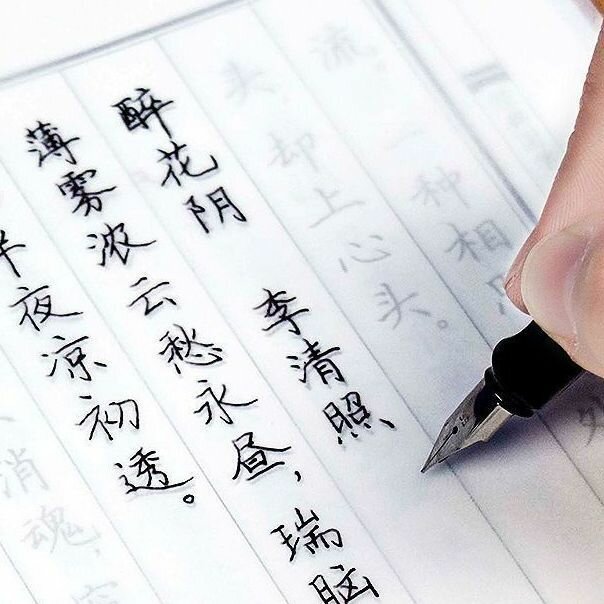 流，一种相
头，却上心头。
醉花阴 李清照
薄雾浓云愁永昼，瑞脑
半夜凉初透。
消魂，